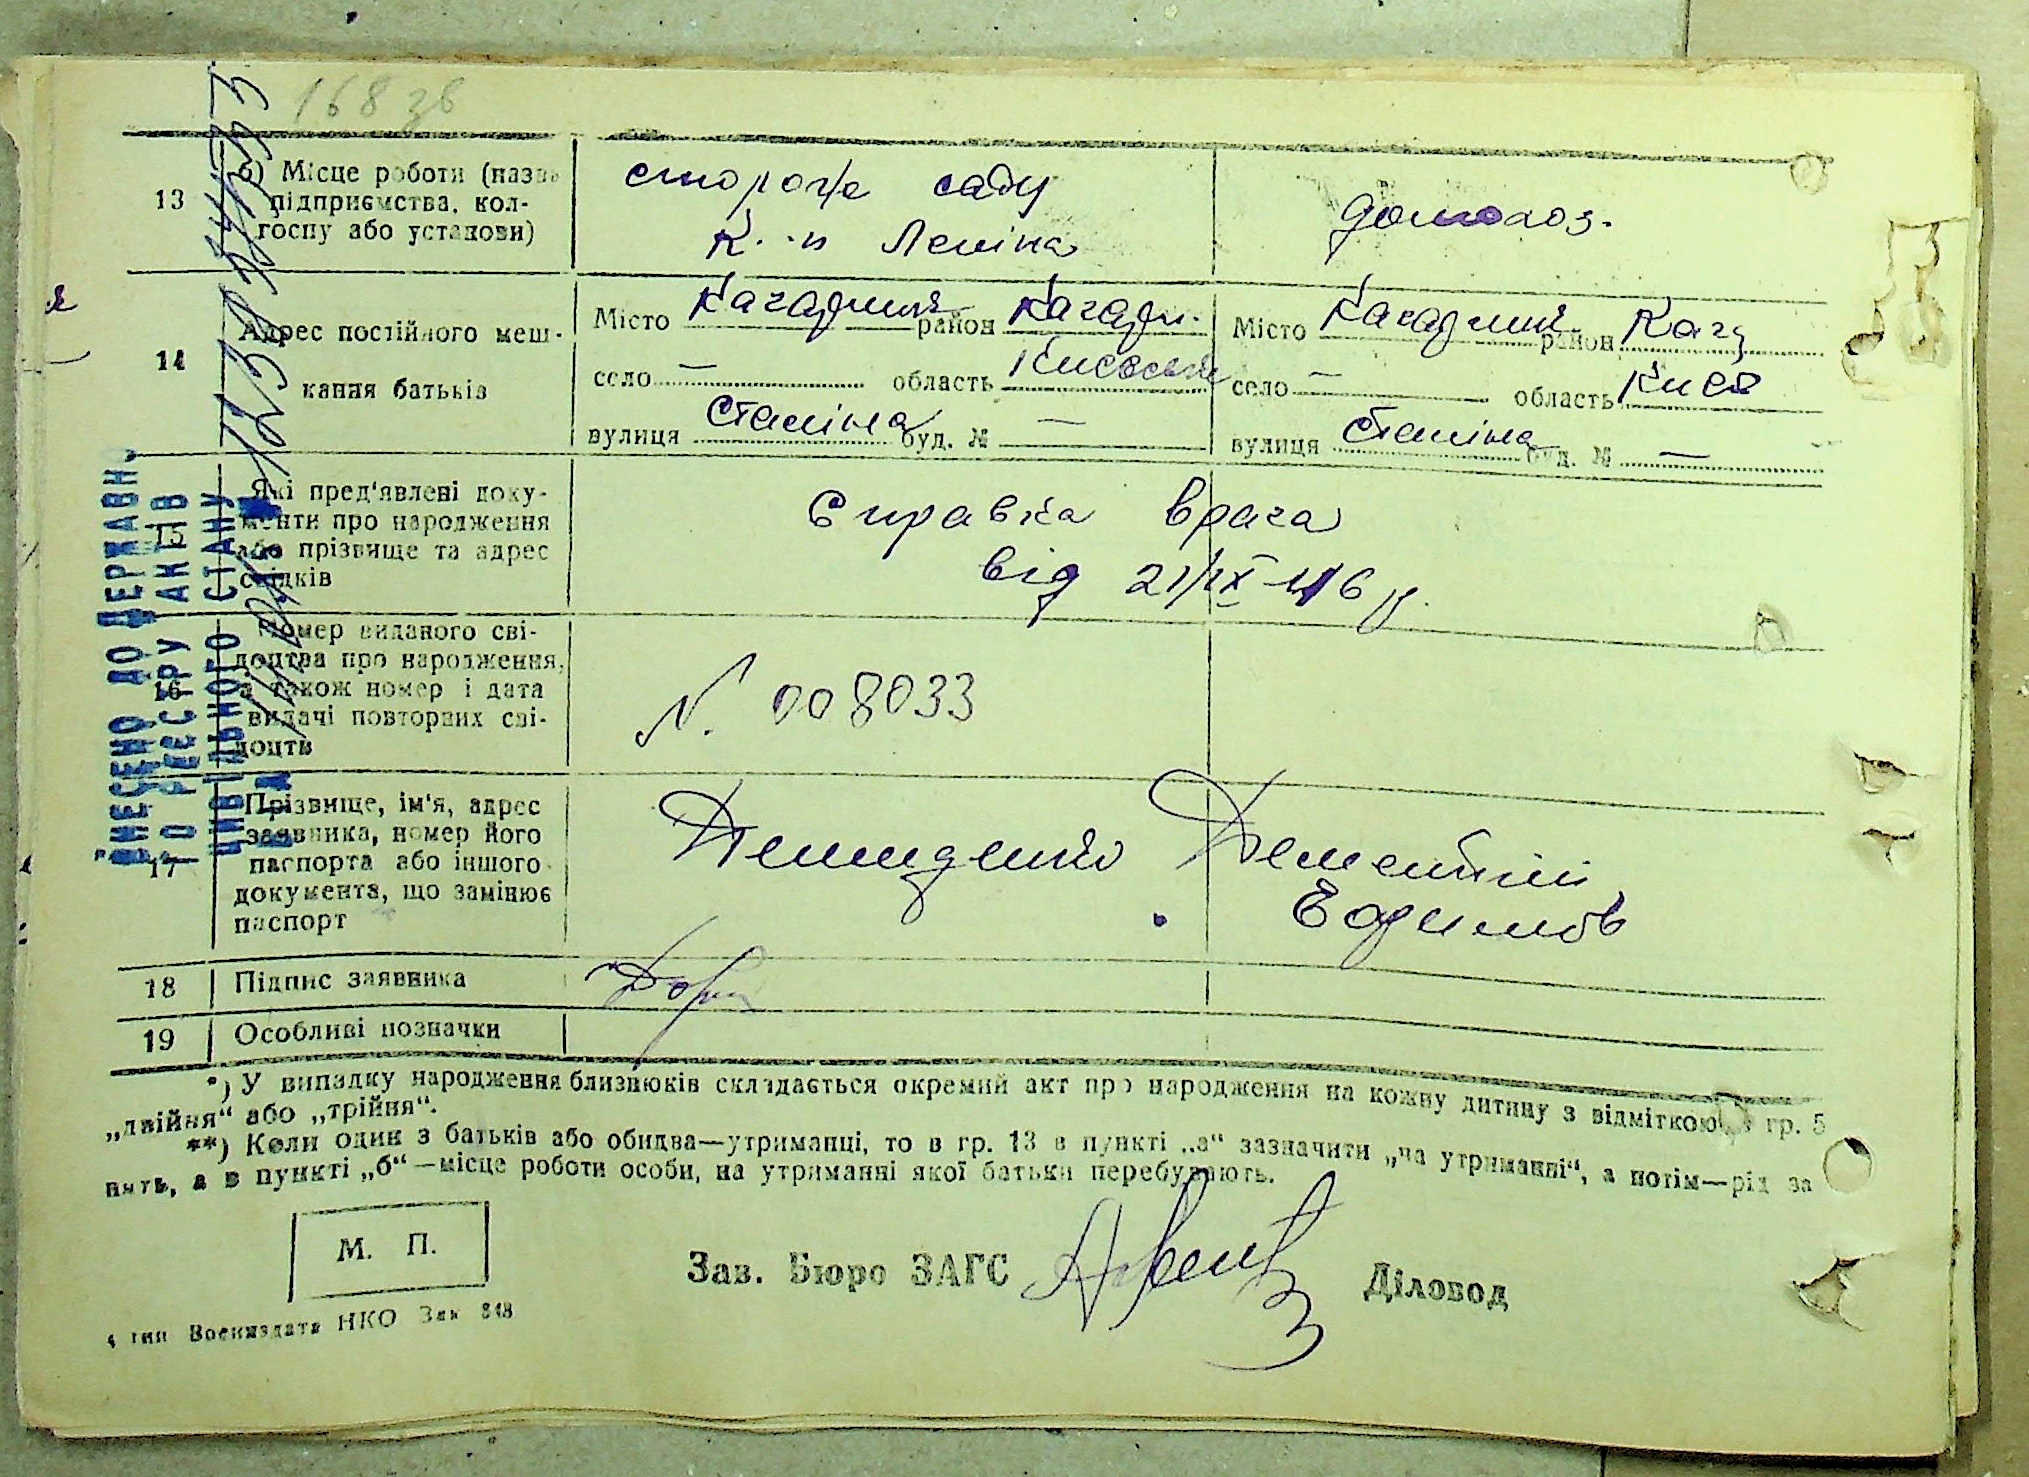 168 зв
13
б) Місце роботи (назва
підприємства, кол-
госпу або установи)
сторож саду
к. Леніна
домогоз.
14
Адрес постійного меш-
кання батьків
Місто Кагарлик район Кагарл.
село — область Київськ
вулиця Сталіна буд. № —
Місто Кагарлик район Кага
село — область Київ
вулиця Сталіна буд. № —
15
Які пред'явлені доку-
менти про народження
або прізвище та адрес
свідків
Справка врача
від 21/IX-46 р.
16
Номер виданого сві-
доцтва про народження,
а також номер і дата
видачі повторних сві-
доцтв
N. 008033
17
Прізвище, ім'я, адрес
заявника, номер його
паспорта або іншого
документа, що замінює
паспорт
Демиденко Дементій
18
Підпис заявника
19
Особливі позначки
*) У випадку народження близнюків складається окремий акт про народження на кожну дитину з відміткою гр. 5
„двійня“ або „трійня“.
**) Коли один з батьків або обидва—утриманці, то в гр. 13 в пункті „а“ зазначити „на утриманні“, а потім—рід за
нять, а в пункті „б“—місце роботи особи, на утриманні якої батьки перебувають.
М. П.
Зав. Бюро ЗАГС
Діловод
4 тип Воениздата НКО Зак 848
ВНЕСЕНО ДО ДЕРЖАВН.
ГО РЕЄСТРУ АКТІВ
ЦИВІЛЬНОГО СТАНУ